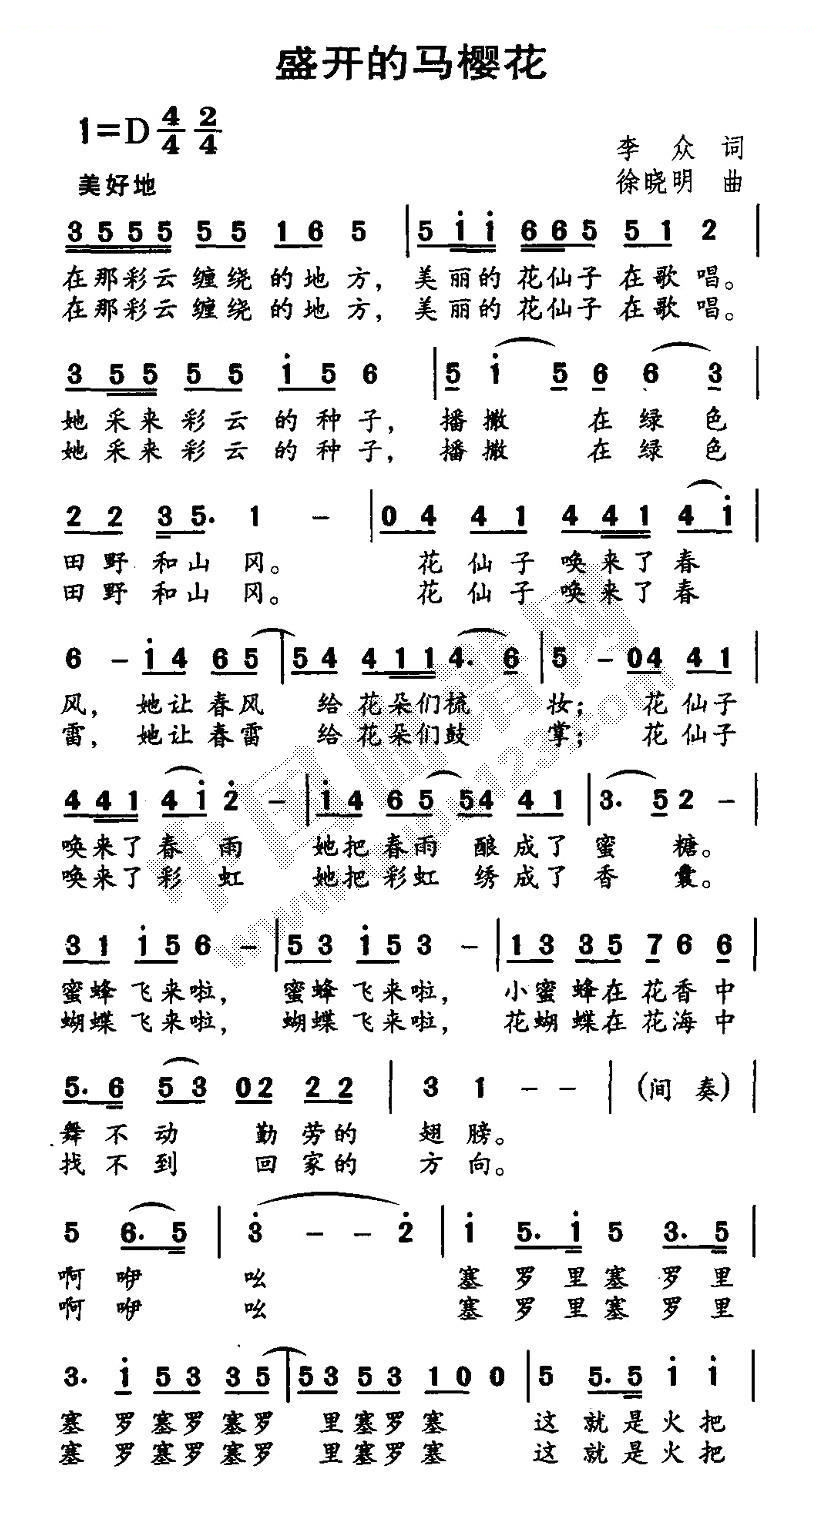 盛开的马樱花
1=D 4/4 2/4
李 众 词
美好地
徐晓明 曲
3 5 5 5 5 5 1 6 5 | 5 i i 6 6 5 5 1 2 |
在那彩云缠绕的地方，美丽的花仙子在歌唱。
在那彩云缠绕的地方，美丽的花仙子在歌唱。
3 5 5 5 5 i 5 6 | 5 i 5 6 6 3 |
她采来彩云的种子，播撒 在绿色
她采来彩云的种子，播撒 在绿色
2 2 3 5. 1 - | 0 4 4 1 4 4 1 4 i |
田野和山冈。 花仙子唤来了春
田野和山冈。 花仙子唤来了春
6 - i 4 6 5 | 5 4 4 1 1 4. 6 | 5 - 0 4 4 1 |
风，她让春风 给花朵们梳 妆；花仙子
雷，她让春雷 给花朵们鼓 掌；花仙子
4 4 1 4 i 2 - | i 4 6 5 5 4 4 1 | 3. 5 2 - |
唤来了春雨 她把春雨酿成了蜜 糖。
唤来了彩虹 她把彩虹绣成了香 囊。
3 1 i 5 6 - | 5 3 i 5 3 - | 1 3 3 5 7 6 6 |
蜜蜂飞来啦， 蜜蜂飞来啦， 小蜜蜂在花香中
蝴蝶飞来啦， 蝴蝶飞来啦， 花蝴蝶在花海中
5. 6 5 3 0 2 2 2 | 3 1 - - | (间奏) |
舞不动 勤劳的 翅膀。
找不到 回家的 方向。
5 6. 5 | 3 - - 2 | i 5. i 5 3. 5 |
啊咿 吆 塞罗里塞罗里
啊咿 吆 塞罗里塞罗里
3. i 5 3 3 5 | 5 3 5 3 1 0 0 | 5 5. 5 i i |
塞罗塞罗塞罗 里塞罗塞 这就是火把
塞罗塞罗塞罗 里塞罗塞 这就是火把